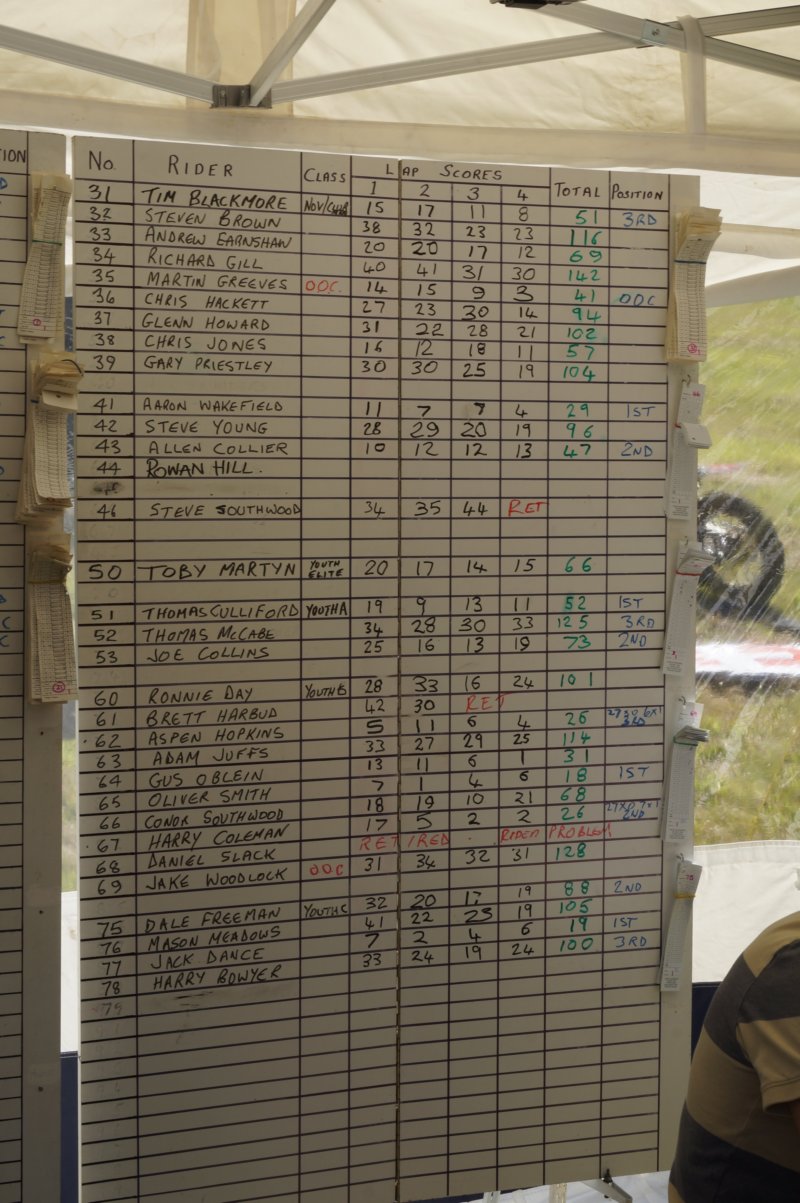 ION
No. RIDER CLASS LAP SCORES TOTAL POSITION
1 2 3 4
31 TIM BLACKMORE NOV/CLUB 15 17 11 8 51 3RD
32 STEVEN BROWN 38 32 23 23 116
33 ANDREW EARNSHAW 20 20 17 12 69
34 RICHARD GILL 40 41 31 30 142
35 MARTIN GREEVES O.O.C. 14 15 9 3 41 OOC
36 CHRIS HACKETT 27 23 30 14 94
37 GLENN HOWARD 31 22 28 21 102
38 CHRIS JONES 16 12 18 11 57
39 GARY PRIESTLEY 30 30 25 19 104
41 AARON WAKEFIELD 11 7 7 4 29 1ST
42 STEVE YOUNG 28 29 20 19 96
43 ALLEN COLLIER 10 12 12 13 47 2ND
44 ROWAN HILL.
46 STEVE SOUTHWOOD 34 35 44 RET
50 TOBY MARTYN YOUTH ELITE 20 17 14 15 66
51 THOMAS CULLIFORD YOUTH A 19 9 13 11 52 1ST
52 THOMAS McCABE 34 28 30 33 125 3RD
53 JOE COLLINS 25 16 13 19 73 2ND
60 RONNIE DAY YOUTH B 28 33 16 24 101
61 BRETT HARBUD 42 30 RET
62 ASPEN HOPKINS 5 11 6 4 26 27x0 6x1 3RD
63 ADAM JUFFS 33 27 29 25 114
64 GUS OBLEIN 13 11 6 1 31
65 OLIVER SMITH 7 1 4 6 18 1ST
66 CONOR SOUTHWOOD 18 19 10 21 68
67 HARRY COLEMAN 17 5 2 2 26 27x0 7x1 2ND
68 DANIEL SLACK RETIRED. RIDER PROBLEM
69 JAKE WOODLOCK OOC 31 34 32 31 128
75 DALE FREEMAN YOUTH C 32 20 17 19 88 2ND
76 MASON MEADOWS 41 22 23 19 105
77 JACK DANCE 7 2 4 6 19 1ST
78 HARRY BOWYER 33 24 19 24 100 3RD
79